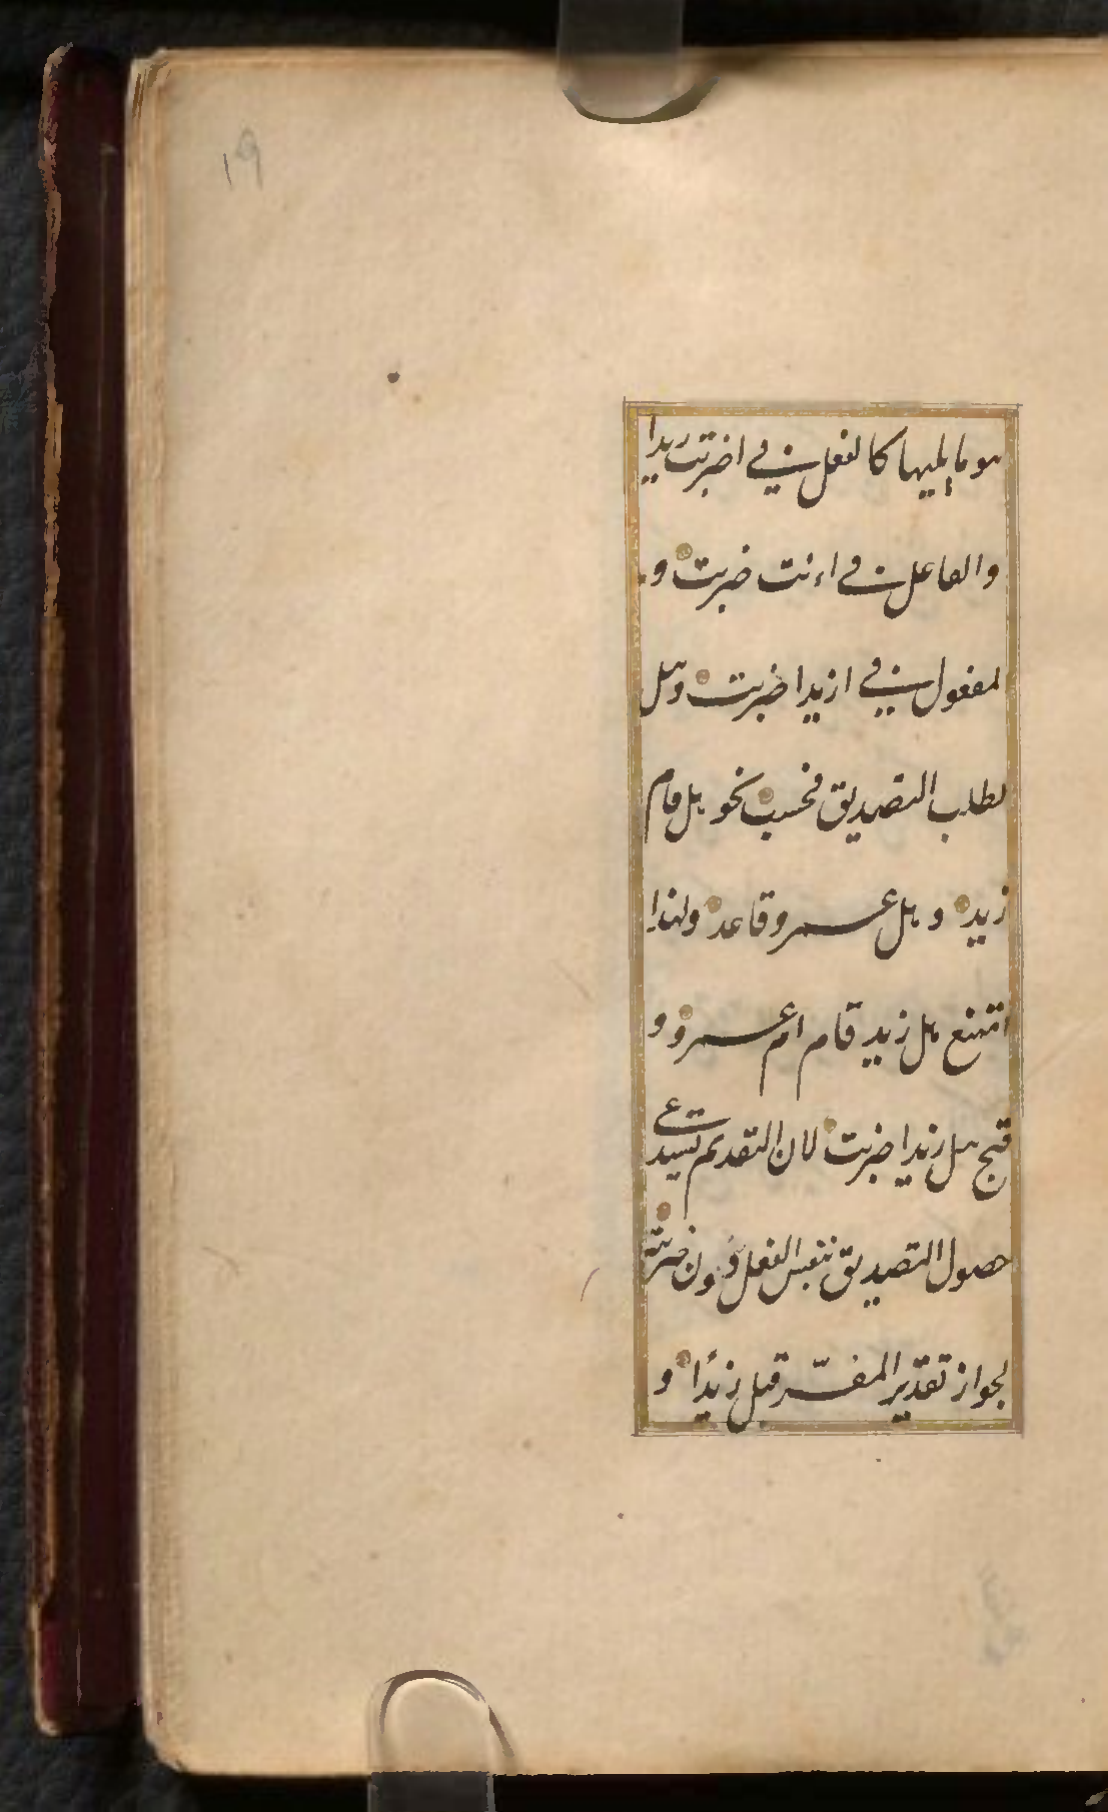 ١٩
هو ما يليها كالفعل في اضربت زيدا
والفاعل في اءنت ضربت و
لمفعول في ازيدا ضربت وهل
لطلب التصديق فحسب نحو هل قام
زيد و هل عمرو قاعد ولهذا
امتنع هل زيد قام ام عمرو و
قبح هل زيدا ضربت لان التقديم يستدعي
حصول التصديق بنفس الفعل دون ضربته
لجواز تقدير المفسّر قبل زيدا و